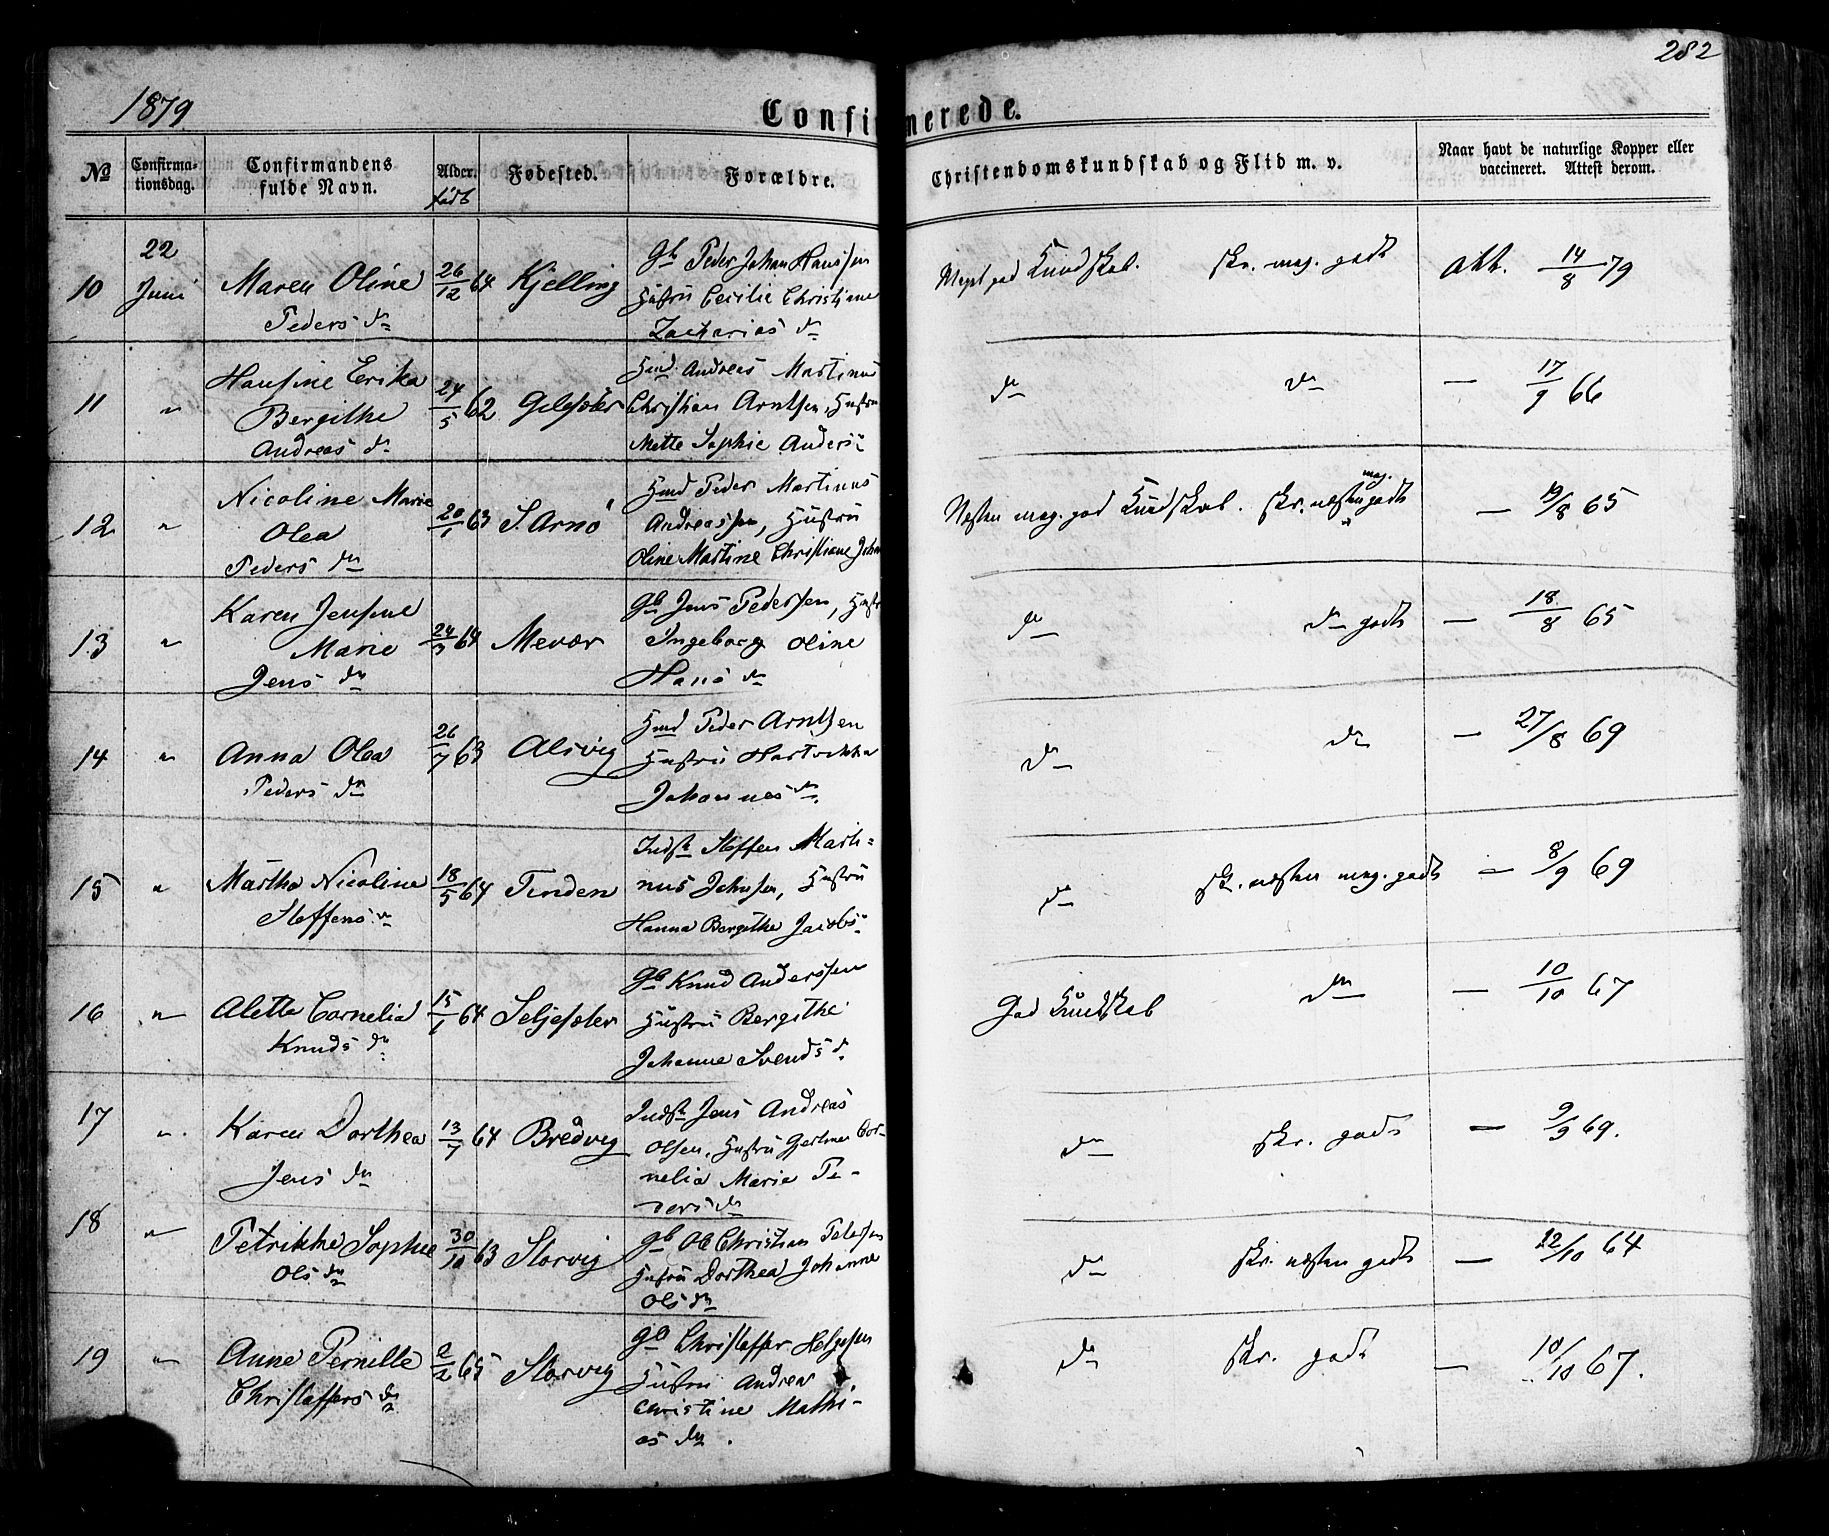 282
1879
Confirmerede.
№ Confirma-
tionsdag. Confirmandens
fulde Navn. Alder.
født Fødested. Forældre. Christendomskundskab og Flid m. v. Naar havt de naturlige Kopper eller
vaccineret. Attest derom.
10 22
Juni Maren Oline
Peders dn 26/12 64 Kjelling Gb Peder Johan Hansen
Hustru Cecilie Christiane
Zacharias dn Meget god Kundskab. skr. meg. godt att. 14/8 79
11 " Hansine Erika
Bergithe
Andreas dn 24/5 62 Gilesæter Hmd. Andreas Martinus
Christian Arntsen, Hustru
Mette Sophie Anders: dn dn — 17/9 66
12 " Nicoline Marie
Olea
Peders dn 20/1 63 S. Arnø Hmd Peder Martinus
Andreassen, Hustru
Oline Martine Christiane Joh Næsten meg. god Kundskab. skr. næsten meg. godt — 19/8 65
13 " Karen Jensine
Marie
Jens dn 24/3 64 Mevær Gb Jens Pedersen, Hustr
Ingeborg Oline
Hans dn dn dn godt — 18/8 65
14 " Anna Olea
Peders dn 26/7 63 Alsvig Hmd Peder Arntsen
Hustru
Johannes dn dn dn — 27/8 69
15 " Martha Nicoline
Steffens dn 18/5 64 Tinden Indst Steffen Marti=
nus Johnsen, Hustru
Hanna Bergithe Jacobs: dn skr. næsten meg. godt — 8/9 69
16 " Alette Cornelia
Knuds dn 15/1 64 Seljesæter Gb Knud Anderssen
Hustru Bergithe
Johanne Svends d. God Kundskab dn — 10/10 67
17 " Karen Dorthea
Jens dn 13/7 64 Bredvig Indst Jens Andreas
Olsen, Hustru Cor-
nelia Marie Pe-
ders dn dn skr. godt — 9/9 69.
18 " Petrikke Sophie
Ols dn 30/10 63 Storvig Gb Ole Christian
Hustru Dorthea Johanne
Ols dn dn skr. næsten godt — 22/10 64
19 " Anne Pernille
Christoffers dn 2/2 65 Storvig Gb Christoffer Helgesen
Hustru Andrea
Christine Mathi-
as dn. dn skr. godt — 10/10 67.